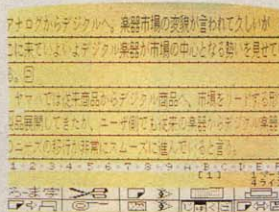 アナログからデジタルへ。楽器市場の変貌が言われて久しいが
こに来ていよいよデジタル楽器が市場の中心となる勢いを見せて
る。回
ヤマハでは従来商品からデジタル商品へ、市場をリードする
品展開してきたが、ユーザ側でも従来の楽器からデジタル楽器
のニーズの移行が非常にスムーズに進んでいると言う。
1・2・3・4・5・6・7・8・9・A・B・C・D・E・F
[1]